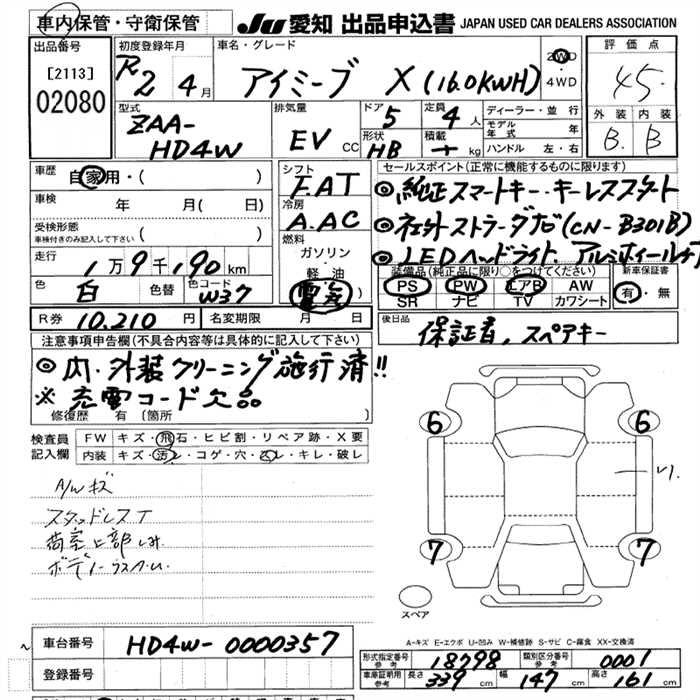 車内保管・守衛保管
JU 愛知 出品申込書 JAPAN USED CAR DEALERS ASSOCIATION
出品番号
[2113]
02080
初度登録年月
R2 4月
車名・グレード
アイミーブ X (16.0KWH)
2WD
4WD
評価点
4.5
外装 内装
B. B
型式
ZAA-
HD4W
排気量
EV CC
ドア 5
形状 HB
定員 4人
積載 + kg
ディーラー・並行
モデル年式 年
ハンドル 左・右
車歴 自家用・( )
車検 年 月( 日)
受検形態
車検付きのみ記入して下さい ( )
走行 1万9千190km
色 白 色替 色コード W37
R券 10.210円 名変期限 月 日
シフト
F.AT
冷房
A.AC
燃料
ガソリン
・
軽油
電気
セールスポイント(正常に機能するものに限ります)
◎純正スマートキー・キーレススタート
◎社外ストラーダナビ(CN-B301B)
◎LEDヘッドライト、アルミホイール
装備品(純正品に限り○をつけてください)
PS PW エアB AW
SR ナビ TV カワシート
新車保証書
有・無
後日品
保証書、スペアキー
注意事項申告欄(不具合内容等は具体的に記入して下さい)
◎内・外装クリーニング施行済!!
※充電コード欠品
修復歴 有〔箇所 〕
検査員
記入欄
FW キズ・飛石・ヒビ割・リペア跡・X要
内装 キズ・汚レ・コゲ・穴・スレ・キレ・破レ
A/Wキズ
スタッドレスT
荷室上部しみ
6 6
7 7
スペア
A-キズ E-エクボ U-凹み W-補修跡 S-サビ C-腐食 XX-交換済
車台番号 HD4W-0000357
登録番号
形式指定番号 参考 18798 類別区分番号 参考 0001
車庫証明用 参考 長さ 339cm 幅 147cm 高さ 161cm